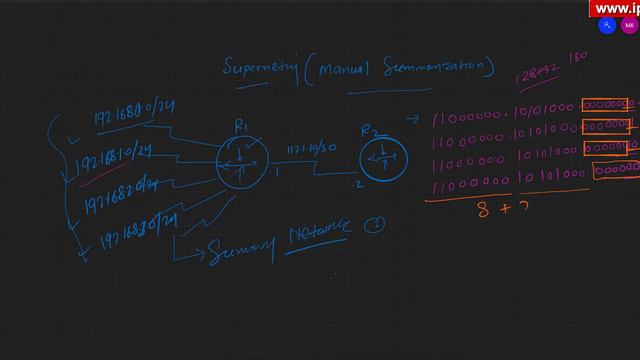 www.ip
MK
Supernetig (Manual Summarization)
128+32 160
192.168.0.0/24
192.168.1.0/24
192.168.2.0/24
192.168.3.0/24
R1
112.1.1.0/30
.1
.2
R2
→ 11000000.10101000.
11000000.10101000.
11000000.10101000.
11000000.10101000.
8 +
Summary Network